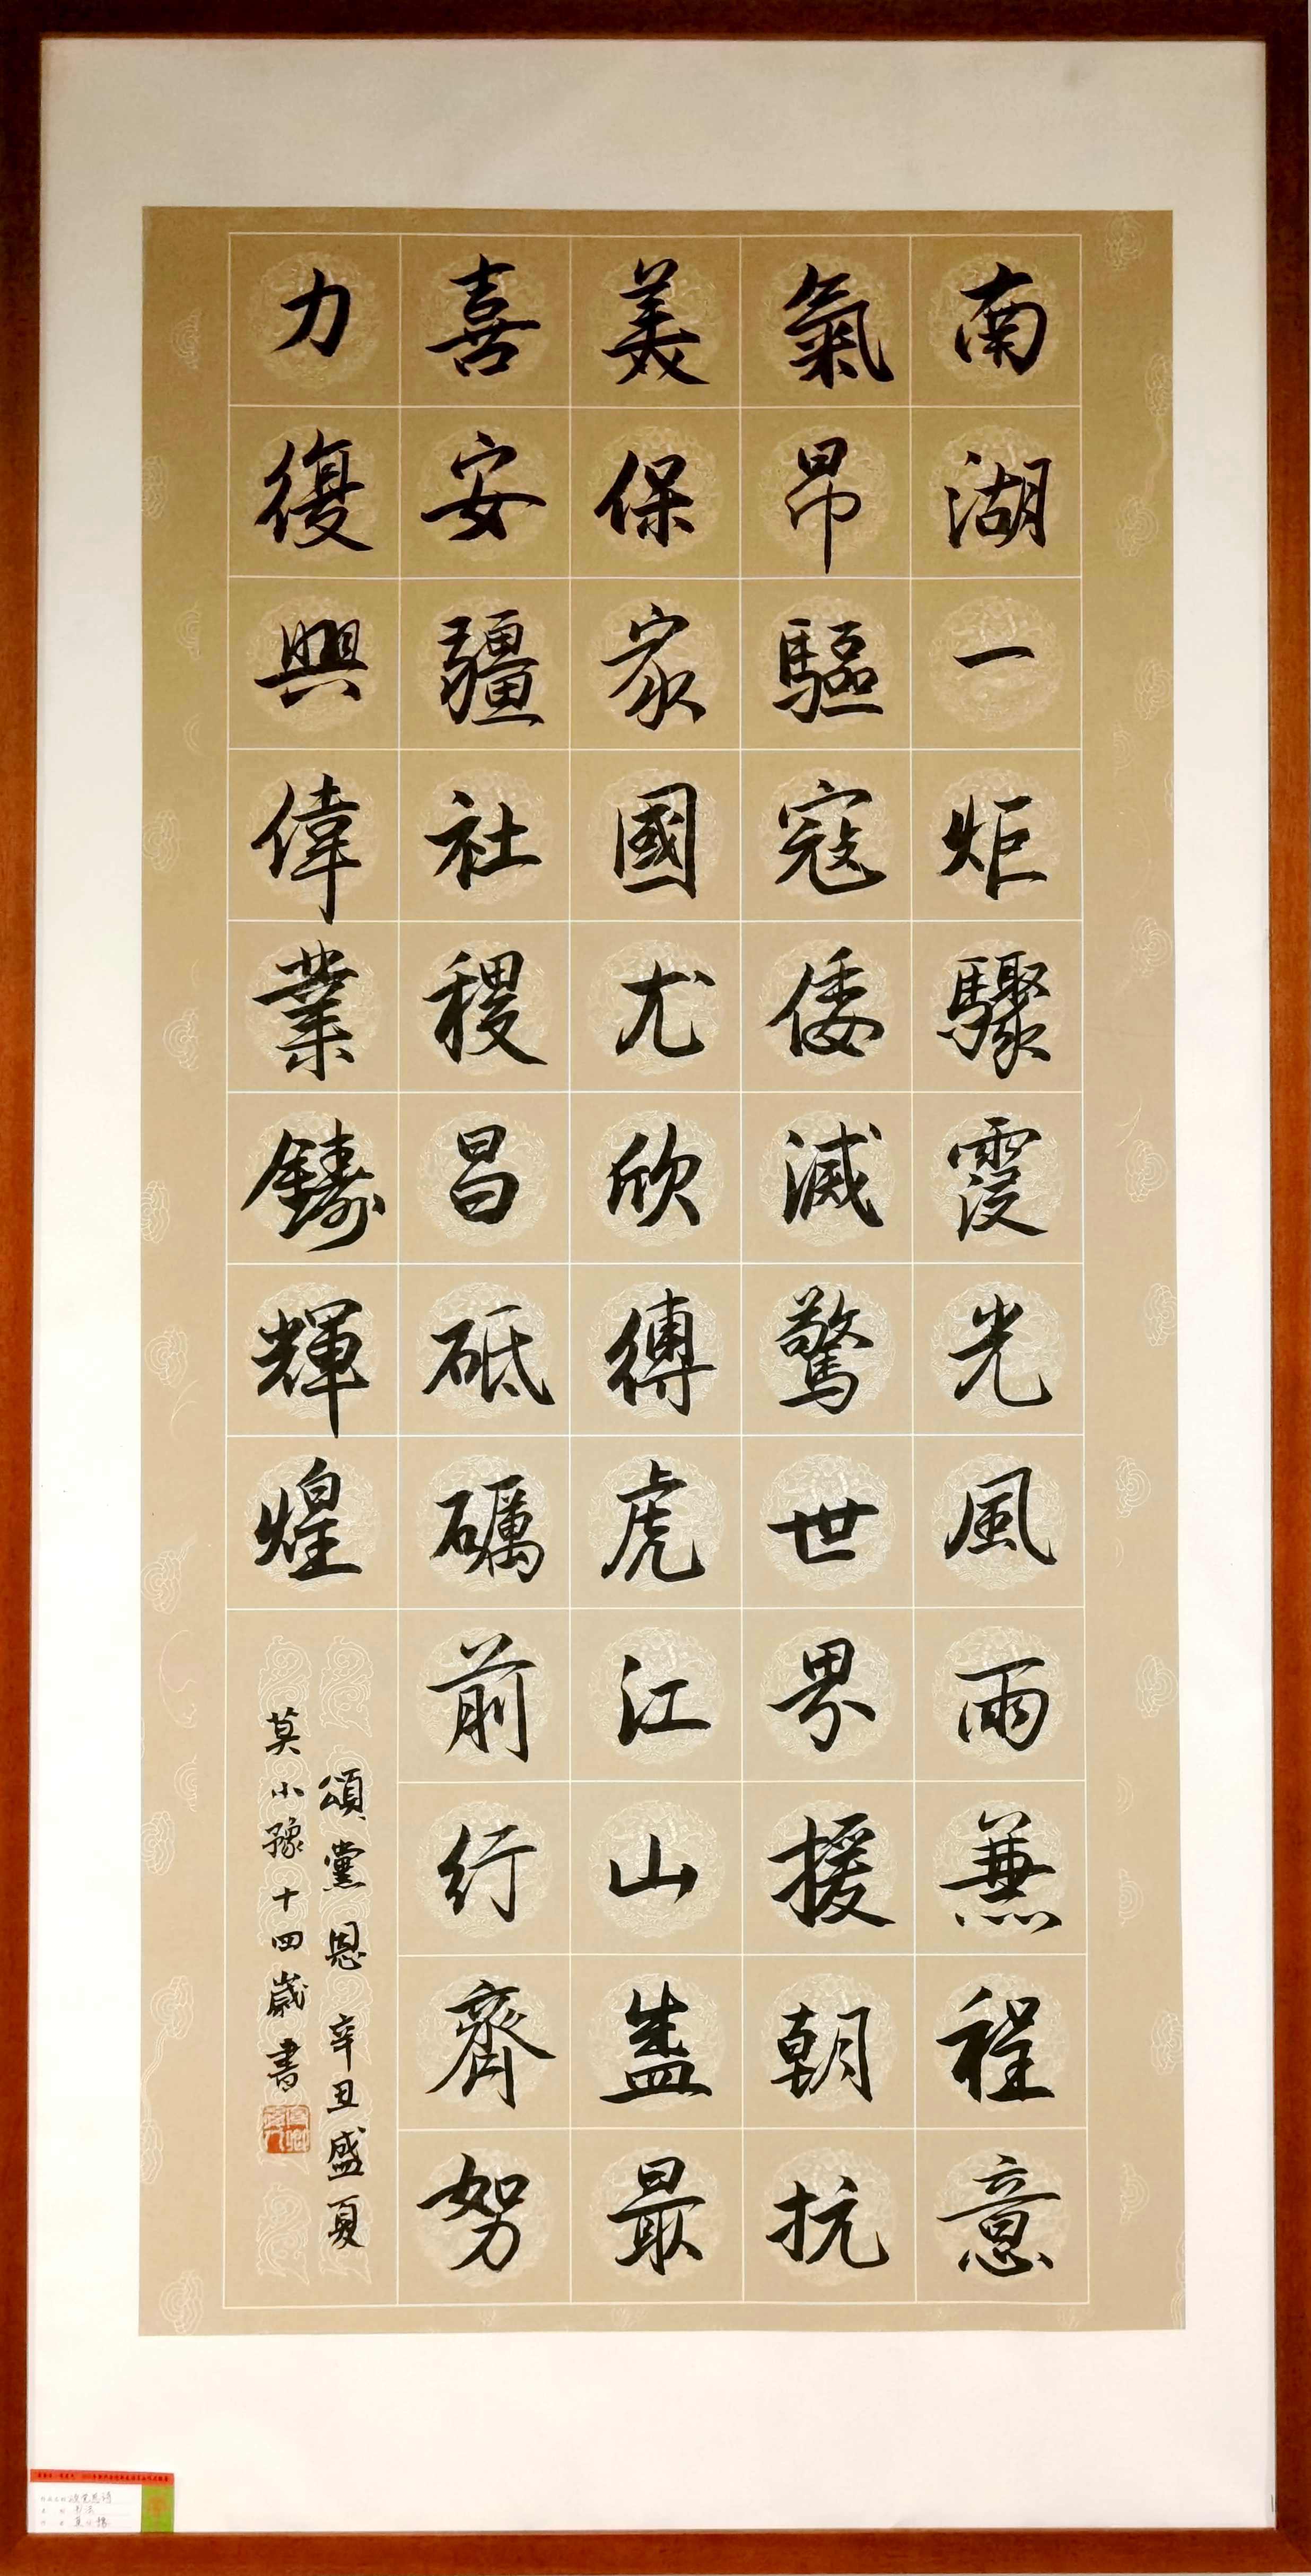 南湖一炬驟霞光風雨兼程意
氣昂驅寇倭滅驚世界援朝抗
美保家國尤欣縛虎江山盡最
喜安疆社稷昌砥礪前行齊努
力復興偉業鑄輝煌
頌黨恩 辛丑盛夏
莫小豫十四歲書